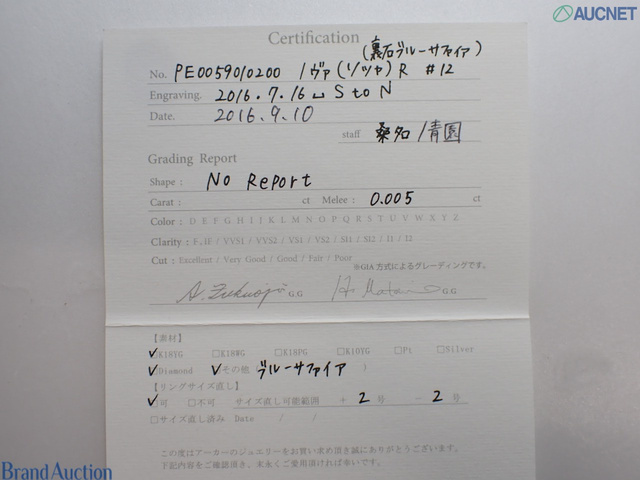 AUCNET
Certification
(裏石ブルーサファイア)
No. PE0059010200 / ヴァ(ソッャ) R #12
Engraving. 2016.7.16 ␣ S to N
Date. 2016.9.10
staff 桑名 / 青園
Grading Report
Shape : No Report
Carat : ct Melee : 0.005 ct
Color : D E F G H I J K L M N O P Q R S T U V W X Y Z
Clarity : F, IF / VVS1 / VVS2 / VS1 / VS2 / SI1 / SI2 / I1 / I2
Cut : Excellent / Very Good / Good / Fair / Poor
※GIA方式によるグレーディングです。
G.G G.G
【素材】
✓□K18YG □K18WG □K18PG □K10YG □Pt □Silver
✓Diamond ✓その他 ブルーサファイア )
【リングサイズ直し】
✓□可 □不可 サイズ直し可能範囲 + 2 号 - 2 号
□サイズ直し済み Date / /
この度はアーカーのジュエリーをお買い求め頂き誠にありがとうございます。
下記内容をご確認頂き、末永くご愛用頂ければ幸いです。
Brand Auction